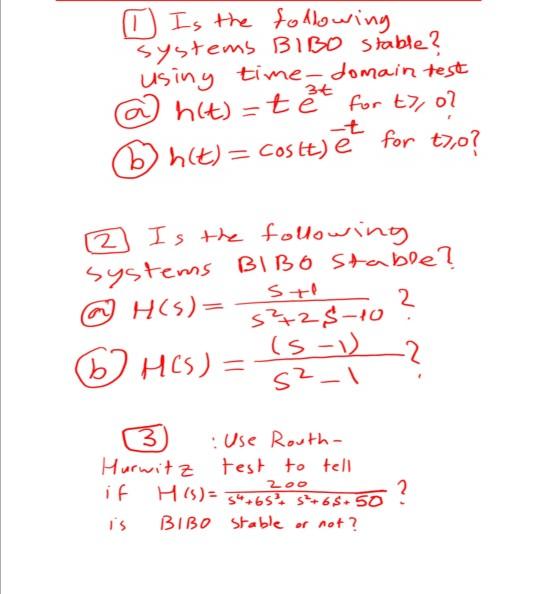 1 Is the following
systems BIBO stable?
using time-domain test
(a) h(t) = t e^{3t} for t ≥ 0?
(b) h(t) = cos(t) e^{-t} for t ≥ 0?
2 Is the following
systems BIBO stable?
(a) H(s) = \frac{s+1}{s^2+2s-10} ?
(b) H(s) = \frac{(s-1)}{s^2-1} ?
3 : Use Routh-
Hurwitz test to tell
if H(s) = \frac{200}{s^4+6s^3+s^2+6s+50} ?
is BIBO stable or not?